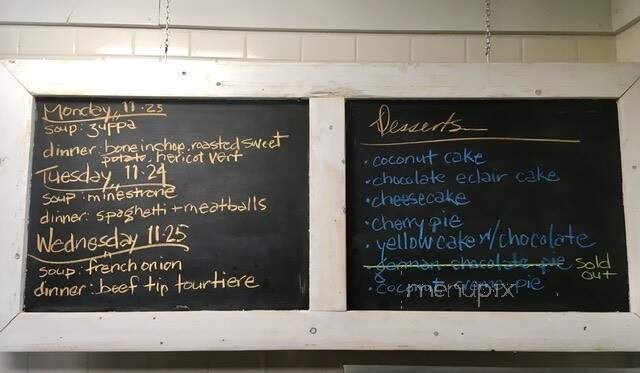 Monday 11.23
soup: zuppa
dinner: bone in chop, roasted sweet
potato, hericot vert
Tuesday 11.24
soup: minestrone
dinner: spaghetti + meatballs
Wednesday 11.25
soup: french onion
dinner: beef tip tourtiere
Desserts
• coconut cake
• chocolate eclair cake
• cheesecake
• cherry pie
• yellow cake w/ chocolate
german chocolate pie sold out
• coconut creme pie
menupix